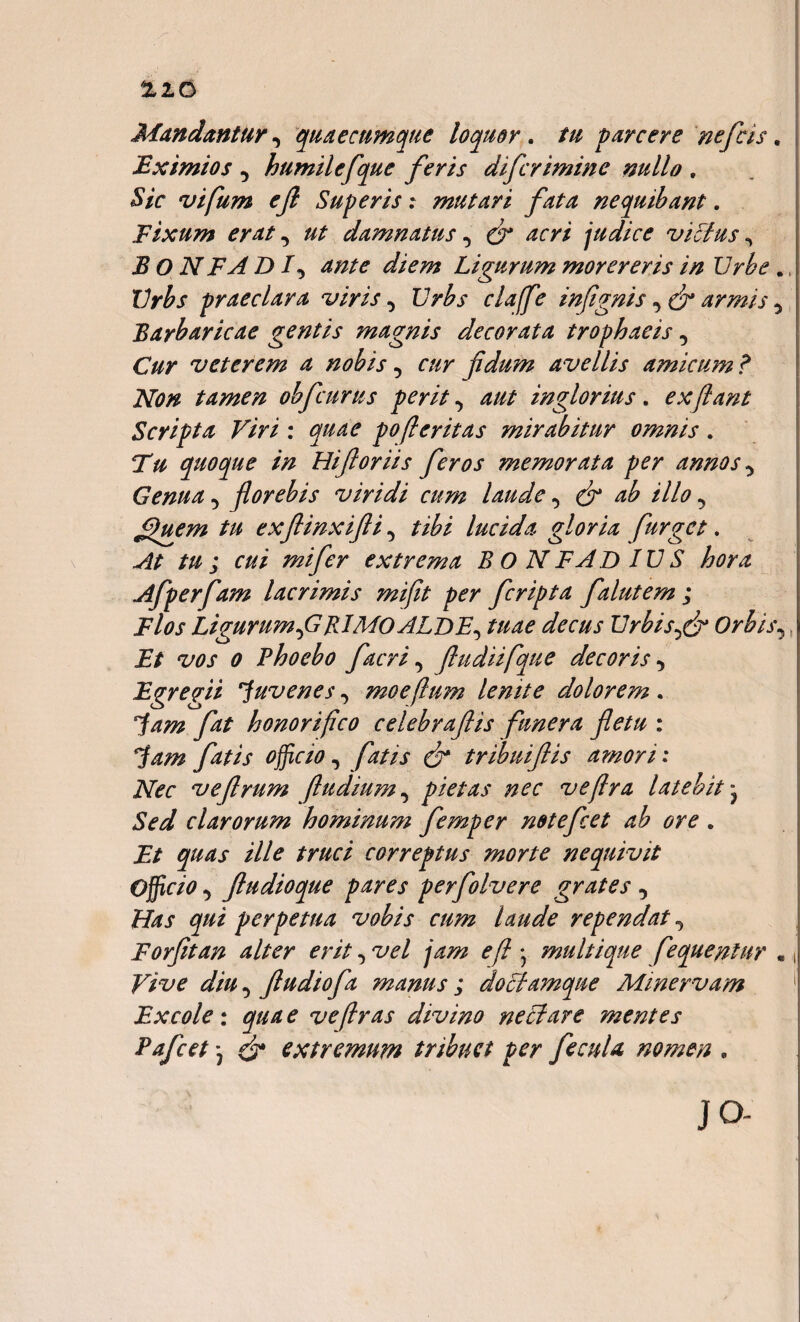 220
Mandantur, quaecumque loquor. tu parcere nefcis.
Eximios, humilefque feris difcrimine nullo.
Sic vifum eſt Superis: mutari fata nequibant.
Fixum erat, ut damnatus, & acri judice victus,
BONFADI, ante diem Ligurum morereris in Urbe.
Urbs praeclara viris, Urbs claſſe inſignis, & armis,
Barbaricae gentis magnis decorata trophaeis,
Cur veterem a nobis, cur fidum avellis amicum?
Non tamen obſcurus perit, aut inglorius. exſtant
Scripta Viri: quae poſteritas mirabitur omnis.
Tu quoque in Hiſtoriis ſeros memorata per annos,
Genua, florebis viridi cum laude, & ab illo,
Quem tu exſtinxiſti, tibi lucida gloria ſurget.
At tu; cui miſer extrema BONFADIUS hora
Aſperſam lacrimis miſit per ſcripta ſalutem;
Flos Ligurum, GRIMOALDE, tuae decus Urbis, & Orbis,
Et vos o Phoebo ſacri, ſtudiiſque decoris,
Egregii Juvenes, moeſtum lenite dolorem.
Jam ſat honorifico celebraſtis funera fletu:
Jam ſatis officio, ſatis & tribuiſtis amori:
Nec veſtrum ſtudium, pietas nec veſtra latebit;
Sed clarorum hominum ſemper noteſcet ab ore.
Et quas ille truci correptus morte nequivit
Officio, ſtudioque pares perſolvere grates,
Has qui perpetua vobis cum laude rependat,
Forſitan alter erit, vel jam eſt; multique ſequentur.
Vive diu, ſtudioſa manus; doctamque Minervam
Excole: quae veſtras divino nectare mentes
Paſcet; & extremum tribuet per ſecula nomen.
JO-